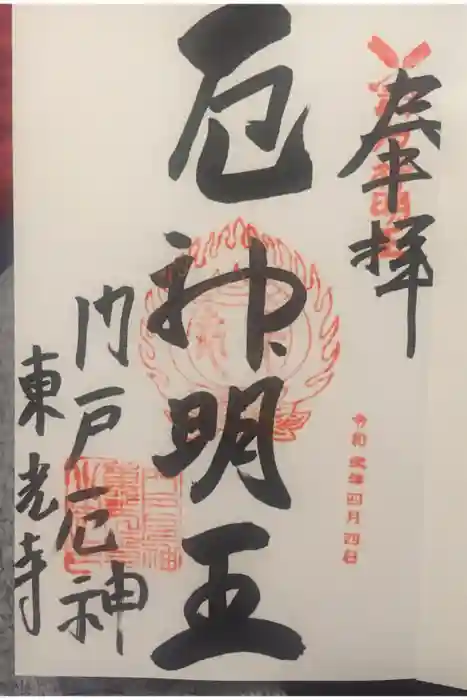 奉拝
令和弐年四月四日
厄神明王
門戸厄神
東光寺